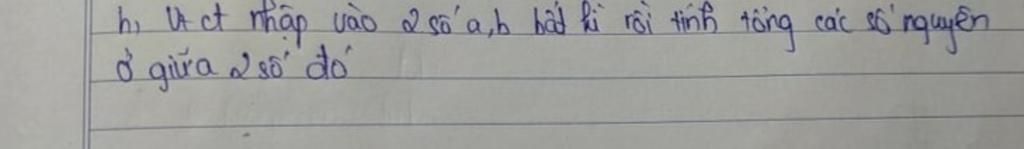 h, Vt ct nhập vào 2 số a, b bất kì rồi tính tổng các số nguyên
ở giữa 2 số đó